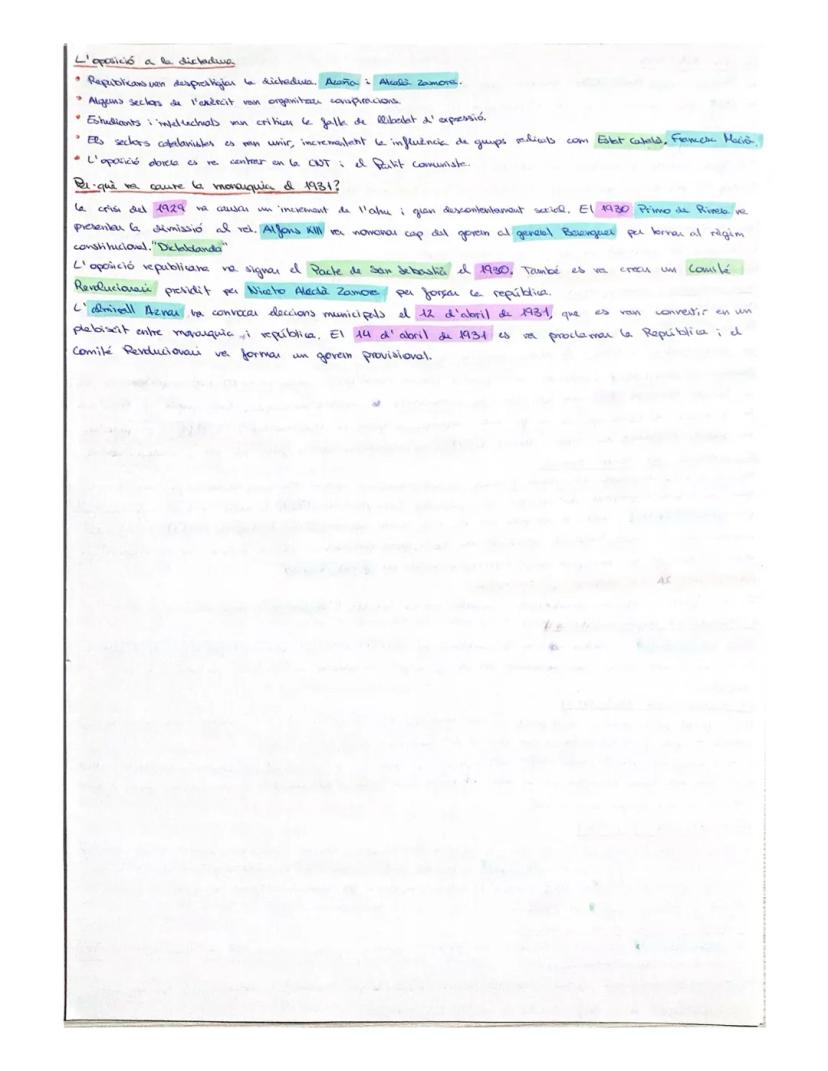 L'oposició a la dictadura
• Republicans van desprestigiar la dictadura. Azaña i Alcalà Zamora.
• Alguns sectors de l'exèrcit van organitzar conspiracions.
• Estudiants i intel·lectuals van criticar la falta de llibertat d'expressió.
• Els sectors catalanistes es van unir, incrementant la influència de grups radicals com Estat Català, Francesc Macià.
• L'oposició obrera es va centrar en la CNT i el Partit Comunista.
Per què va caure la monarquia el 1931?
La crisi del 1929 va causar un increment de l'atur i gran descontentament social. El 1930 Primo de Rivera va
presentar la dimissió al rei. Alfons XIII va nomenar cap del govern al general Berenguer per tornar al règim
constitucional. "Dictablanda"
L'oposició republicana va signar el Pacte de San Sebastià el 1930. També es va crear un Comité
Revolucionari presidit per Niceto Alcalà Zamora per forçar la república.
L'almirall Aznar va convocar eleccions municipals el 12 d'abril de 1931, que es van convertir en un
plebiscit entre monarquia i república. El 14 d'abril de 1931 es va proclamar la República i el
Comité Revolucionari va formar un govern provisional.